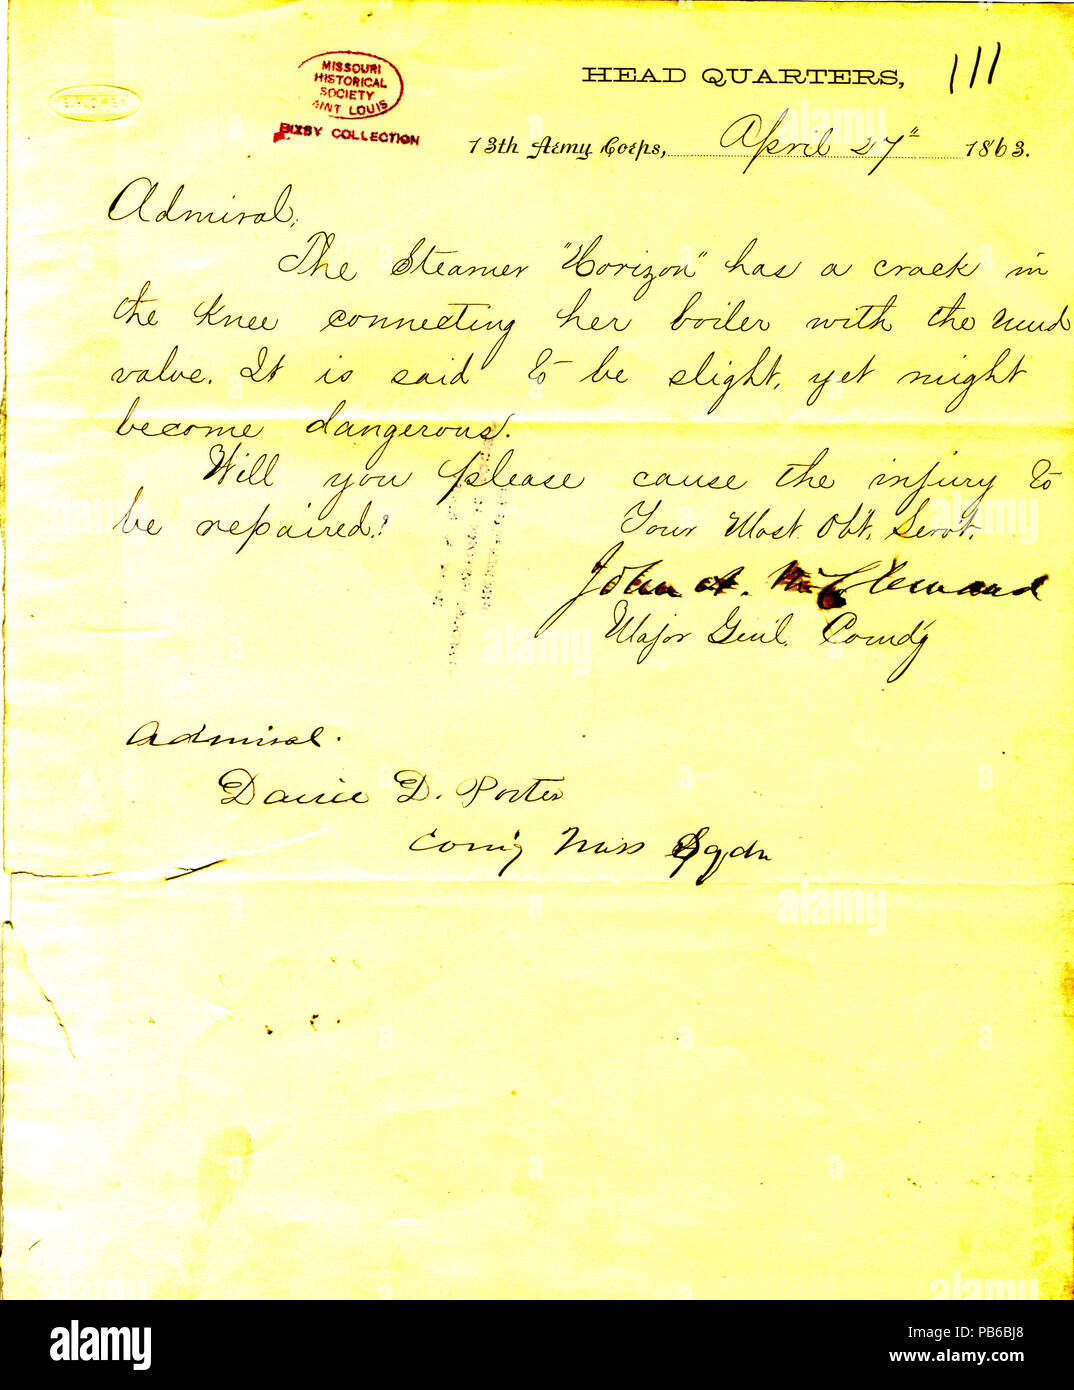 MISSOURI
HISTORICAL
SOCIETY
AINT LOUIS
BIXBY COLLECTION
HEAD QUARTERS,
111
13th Army Corps, April 27th 1863.
Admiral,
The Steamer "Horizon" has a crack in
the Knee connecting her boiler with the mud
valve. It is said to be slight, yet might
become dangerous.
Will you please cause the injury to
be repaired?
Your Most Obt. Servt.
John A. McClernand
Major Genl. Comdg
Admiral.
Davie D. Porter
Comg Miss Sqdn
alamy
Image ID: PB6BJ8
www.alamy.com